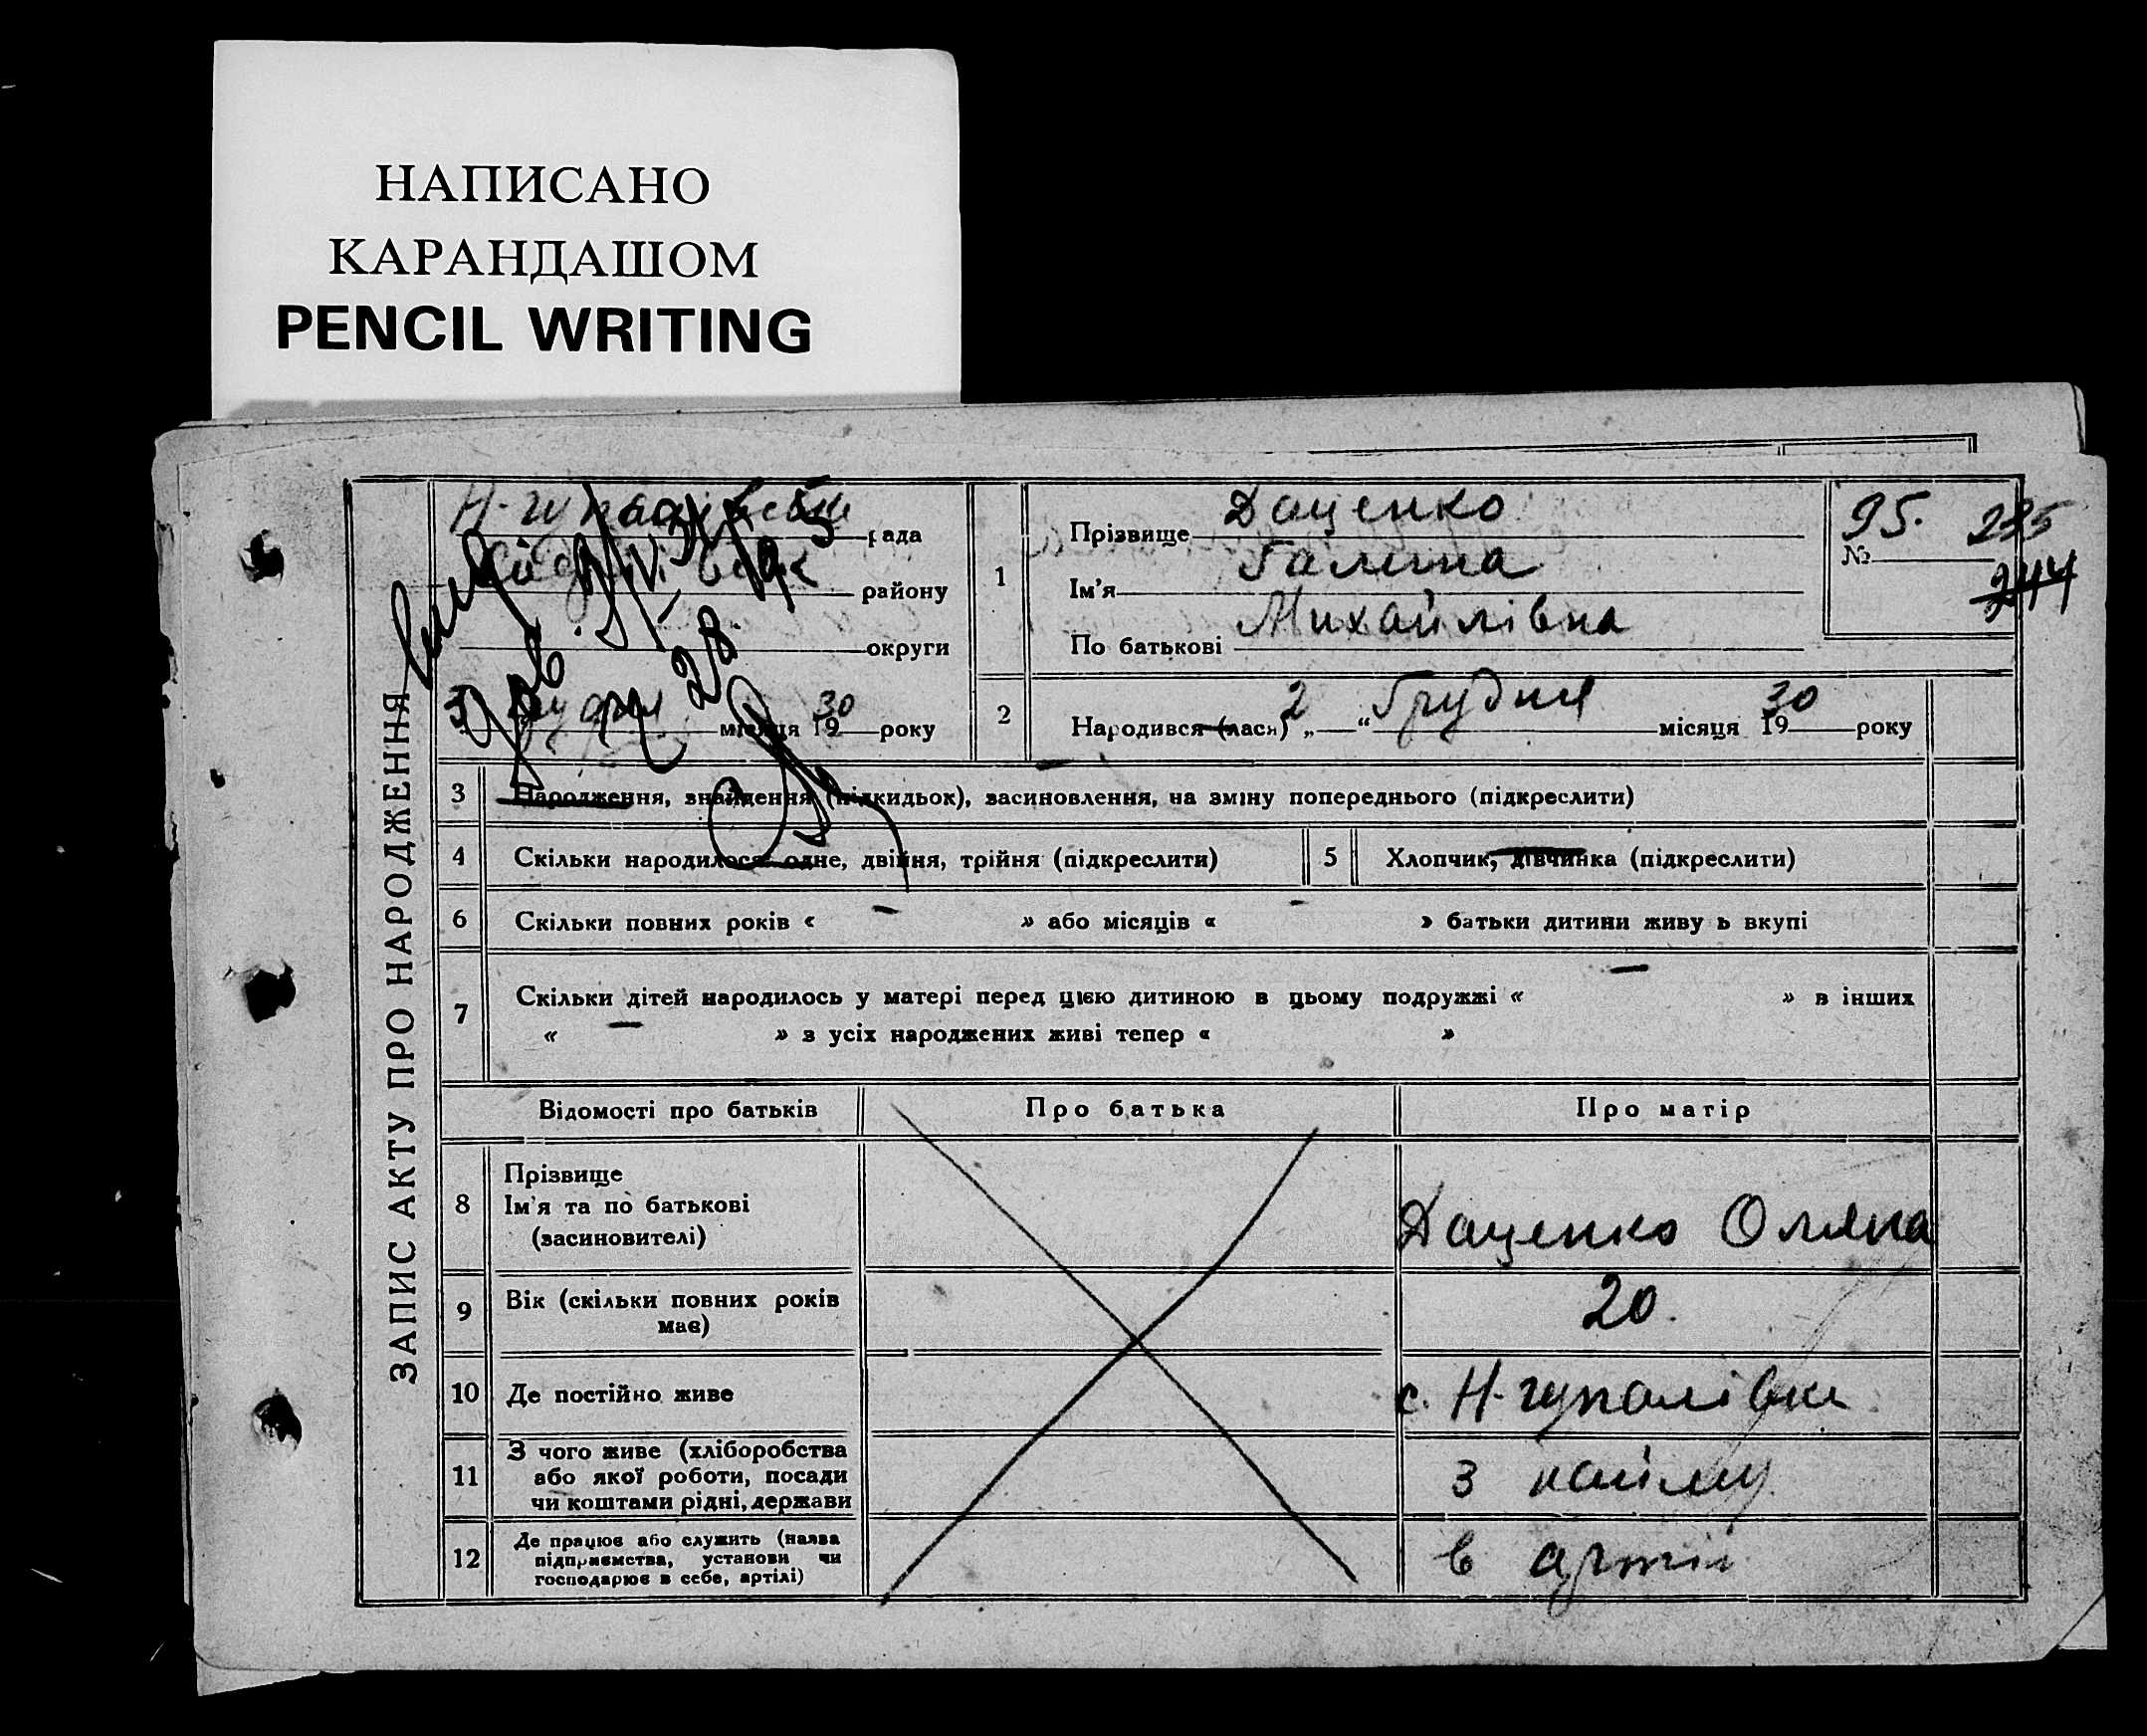 НАПИСАНО
КАРАНДАШОМ
PENCIL WRITING
ЗАПИС АКТУ ПРО НАРОДЖЕННЯ
рада
району
округи
місяця 1930 року
1
Прізвище Даценко
Ім'я Галина
По батькові Михайлівна
95. 235
№
244
2 Народився (лася) „2“ Грудня місяця 1930 року
3 Народження, знайдення (підкидьок), засиновлення, на зміну попереднього (підкреслити)
4 Скільки народилося: одне, двійня, трійня (підкреслити)
5 Хлопчик, дівчинка (підкреслити)
6 Скільки повних років « — » або місяців « — » батьки дитини живу ь вкупі
7 Скільки дітей народилось у матері перед цією дитиною в цьому подружжі « — » в інших
« — » з усіх народжених живі тепер « »
Відомості про батьків Про батька Про матір
8 Прізвище
Ім'я та по батькові
(засиновителі)
Даценко Оляна
9 Вік (скільки повних років
має)
20.
10 Де постійно живе
с. Н-гупалівки
11 З чого живе (хліборобства
або якої роботи, посади
чи коштами рідні, держави
з найму
12 Де працює або служить (назва
підприємства, установи чи
господарює в себе, артілі)
в артілі